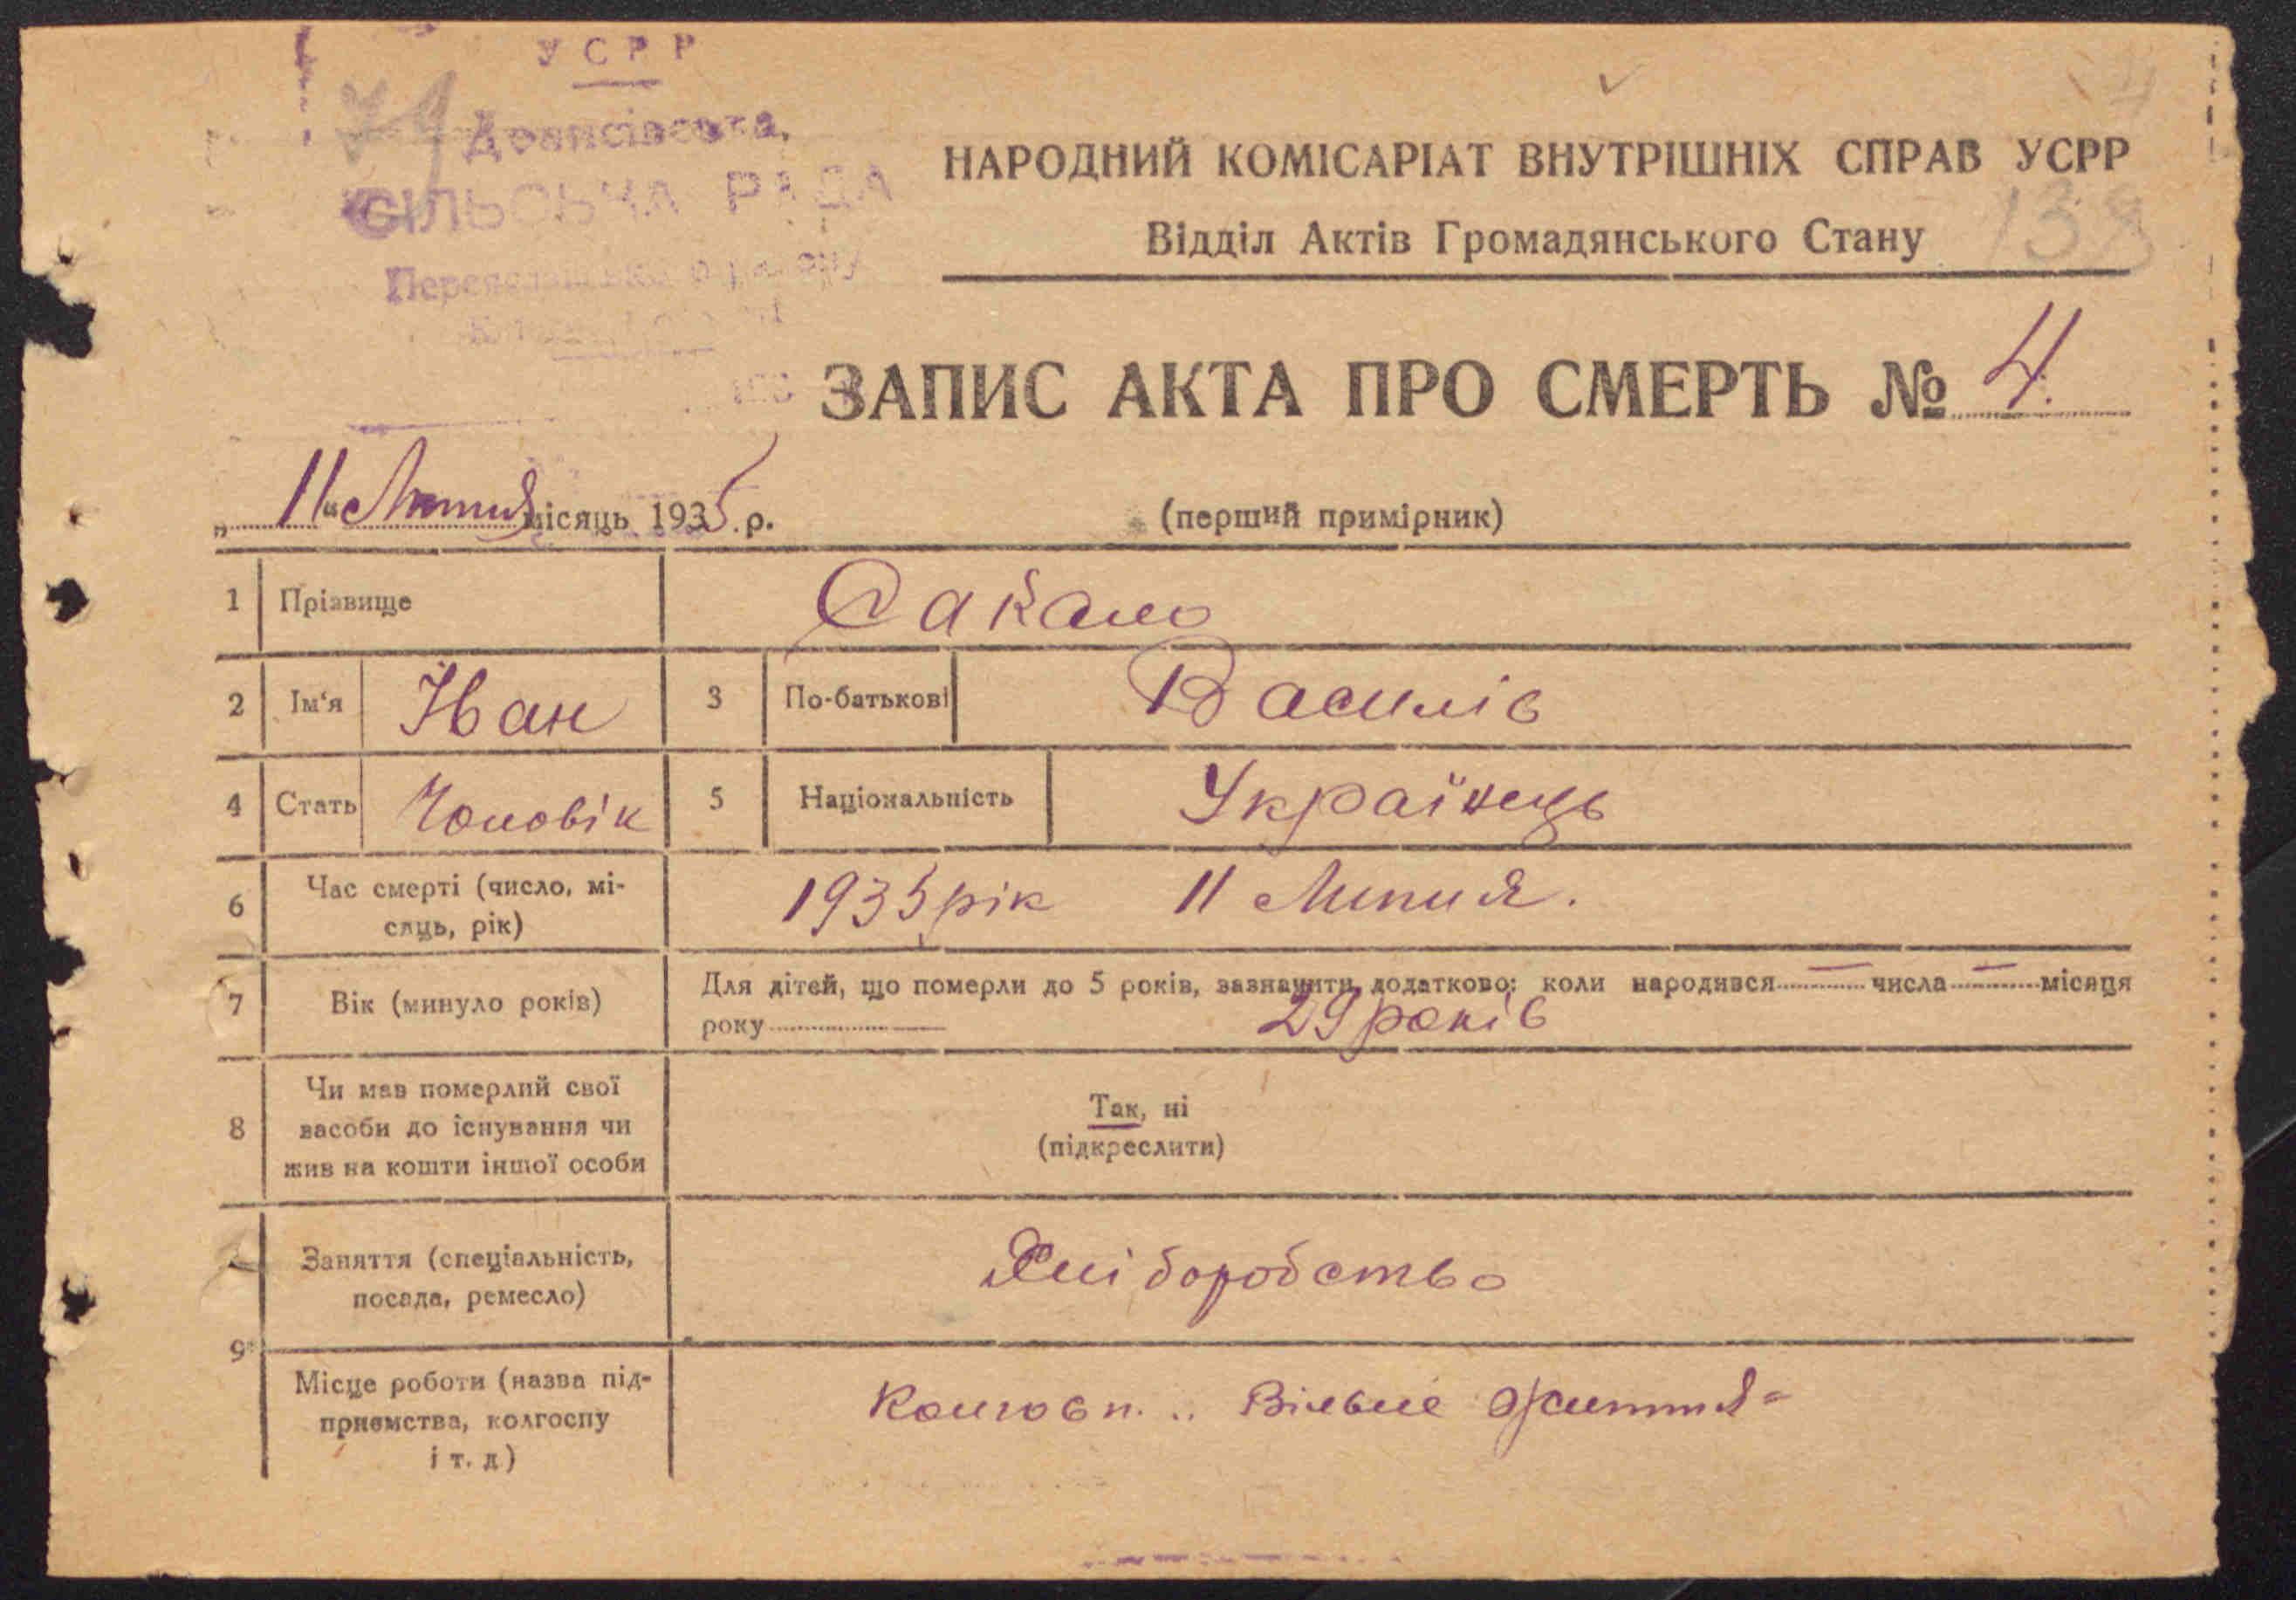 УСРР
СІЛЬСЬКА РАДА
НАРОДНИЙ КОМІСАРІАТ ВНУТРІШНІХ СПРАВ УСРР
138
Відділ Актів Громадянського Стану
ЗАПИС АКТА ПРО СМЕРТЬ № 4.
„ 11 “ місяць 1935 р.
(перший примірник)
1 Прізвище Сакало
2 Ім‘я Іван 3 По-батькові Василів
4 Стать Чоловік 5 Національність Українець
6 Час смерті (число, мі-
сяць, рік)
1935 рік 11
7 Вік (минуло років)
Для дітей, що померли до 5 років, зазначити додатково: коли народився — числа — місяця
року
29 років
8 Чи мав померлий свої
засоби до існування чи
жив на кошти іншої особи
Так, ні
(підкреслити)
Заняття (спеціальність,
посада, ремесло)
Хліборобство
9
Місце роботи (назва під-
приємства, колгоспу
і т. д)
Вільне життя